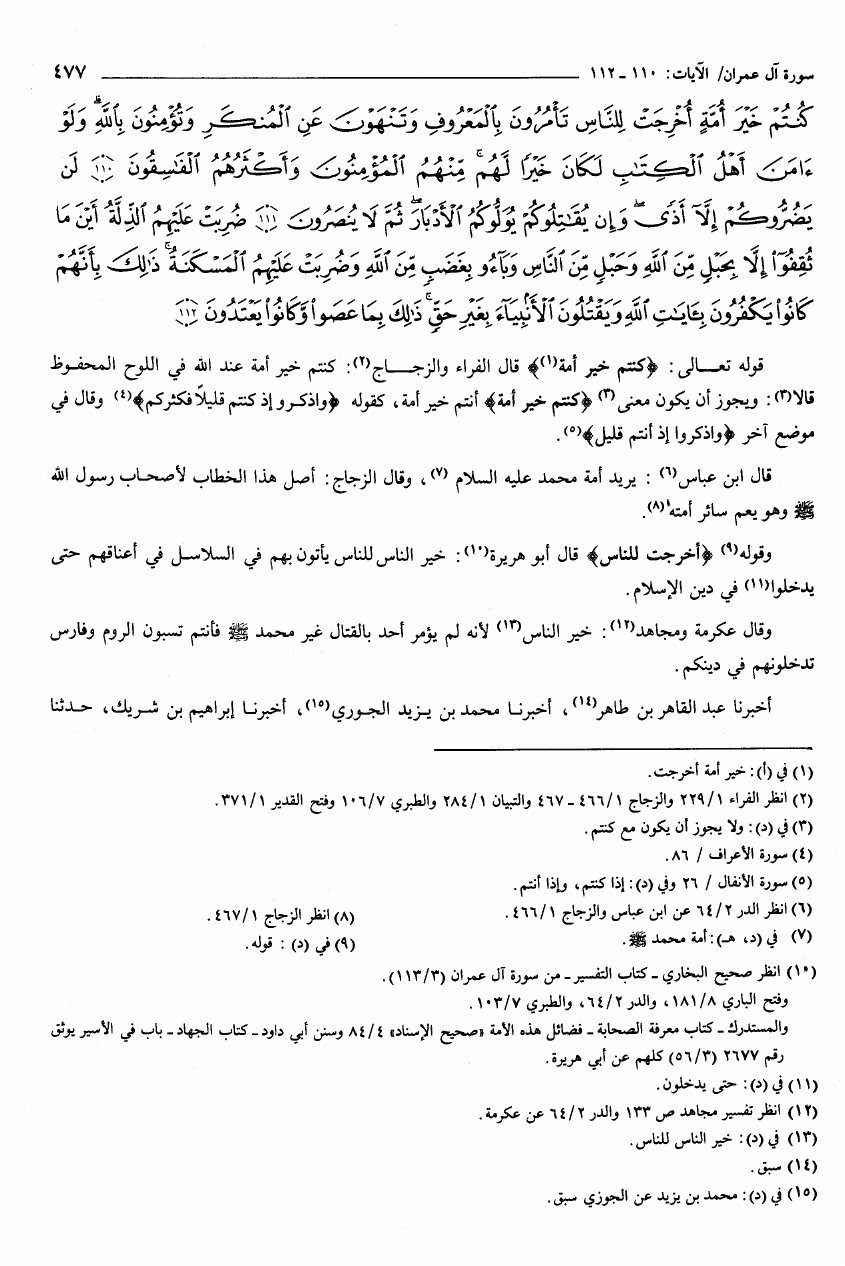 سورة آل عمران/ الآيات: ١١٠ ـ ١١٢ ٤٧٧
كُنتُمْ خَيْرَ أُمَّةٍ أُخْرِجَتْ لِلنَّاسِ تَأْمُرُونَ بِٱلْمَعْرُوفِ وَتَنْهَوْنَ عَنِ ٱلْمُنكَرِ وَتُؤْمِنُونَ بِٱللَّهِ ۗ وَلَوْ
ءَامَنَ أَهْلُ ٱلْكِتَٰبِ لَكَانَ خَيْرًا لَّهُم ۚ مِّنْهُمُ ٱلْمُؤْمِنُونَ وَأَكْثَرُهُمُ ٱلْفَٰسِقُونَ ١١٠ لَن
يَضُرُّوكُمْ إِلَّآ أَذًى ۖ وَإِن يُقَٰتِلُوكُمْ يُوَلُّوكُمُ ٱلْأَدْبَارَ ۖ ثُمَّ لَا يُنصَرُونَ ١١١ ضُرِبَتْ عَلَيْهِمُ ٱلذِّلَّةُ أَيْنَ مَا
ثُقِفُوٓا۟ إِلَّا بِحَبْلٍ مِّنَ ٱللَّهِ وَحَبْلٍ مِّنَ ٱلنَّاسِ وَبَآءُو بِغَضَبٍ مِّنَ ٱللَّهِ وَضُرِبَتْ عَلَيْهِمُ ٱلْمَسْكَنَةُ ۚ ذَٰلِكَ بِأَنَّهُمْ
كَانُوا۟ يَكْفُرُونَ بِـَٔايَٰتِ ٱللَّهِ وَيَقْتُلُونَ ٱلْأَنۢبِيَآءَ بِغَيْرِ حَقٍّ ۚ ذَٰلِكَ بِمَا عَصَوا۟ وَّكَانُوا۟ يَعْتَدُونَ ١١٢
قوله تعــالى: ﴿كنتم خير أمة(١)﴾ قال الفراء والزجــاج(٢): كنتم خير أمة عند الله في اللوح المحفـوظ
قالا(٣): ويجوز أن يكون معنى(٣) ﴿كنتم خير أمة﴾ أنتم خير أمة، كقوله ﴿واذكـروا إذ كنتم قليلاً فكثركم﴾(٤) وقال في
موضع آخر ﴿واذكروا إذ أنتم قليل﴾(٥).
قال ابن عباس(٦): يريد أمة محمد عليه السلام(٧)، وقال الزجاج: أصل هذا الخطاب لأصحـاب رسول الله
ﷺ وهو يعم سائر أمته(٨).
وقوله(٩) ﴿أخرجت للناس﴾ قال أبو هريرة(١٠): خير الناس للناس يأتون بهم في السلاسـل في أعناقهم حتى
يدخلوا(١١) في دين الإسلام.
وقال عكرمة ومجاهد(١٢): خير الناس(١٣) لأنه لم يؤمر أحد بالقتال غير محمد ﷺ فأنتم تسبون الروم وفارس
تدخلونهم في دينكم.
أخبرنا عبد القاهر بن طاهر(١٤)، أخبرنـا محمد بن يـزيد الجـوري(١٥)، أخبرنـا إبراهيم بن شـريك، حـدثنا
(١) في (أ): خير أمة أخرجت.
(٢) انظر الفراء ٢٢٩/١ والزجاج ٤٦٦/١ ـ ٤٦٧ والتبيان ٢٨٤/١ والطبري ١٠٦/٧ وفتح القدير ٣٧١/١.
(٣) في (د): ولا يجوز أن يكون مع كنتم.
(٤) سورة الأعراف / ٨٦.
(٥) سورة الأنفال / ٢٦ وفي (د): إذا كنتم، وإذا أنتم.
(٦) انظر الدر ٦٤/٢ عن ابن عباس والزجاج ٤٦٦/١. (٨) انظر الزجاج ٤٦٧/١.
(٧) في (د، هـ): أمة محمد ﷺ. (٩) في (د) : قوله.
(١٠) انظر صحيح البخاري ـ كتاب التفسير ـ من سورة آل عمران (١١٣/٣).
وفتح الباري ١٨١/٨، والدر ٦٤/٢، والطبري ١٠٣/٧.
والمستدرك ـ كتاب معرفة الصحابة ـ فضائل هذه الأمة «صحيح الإسناد» ٨٤/٤ وسنن أبي داود ـ كتاب الجهاد ـ باب في الأسير يوثق
رقم ٢٦٧٧ (٥٦/٣) كلهم عن أبي هريرة.
(١١) في (د): حتى يدخلون.
(١٢) انظر تفسير مجاهد ص ١٣٣ والدر ٦٤/٢ عن عكرمة.
(١٣) في (د): خير الناس للناس.
(١٤) سبق.
(١٥) في (د): محمد بن يزيد عن الجوزي سبق.